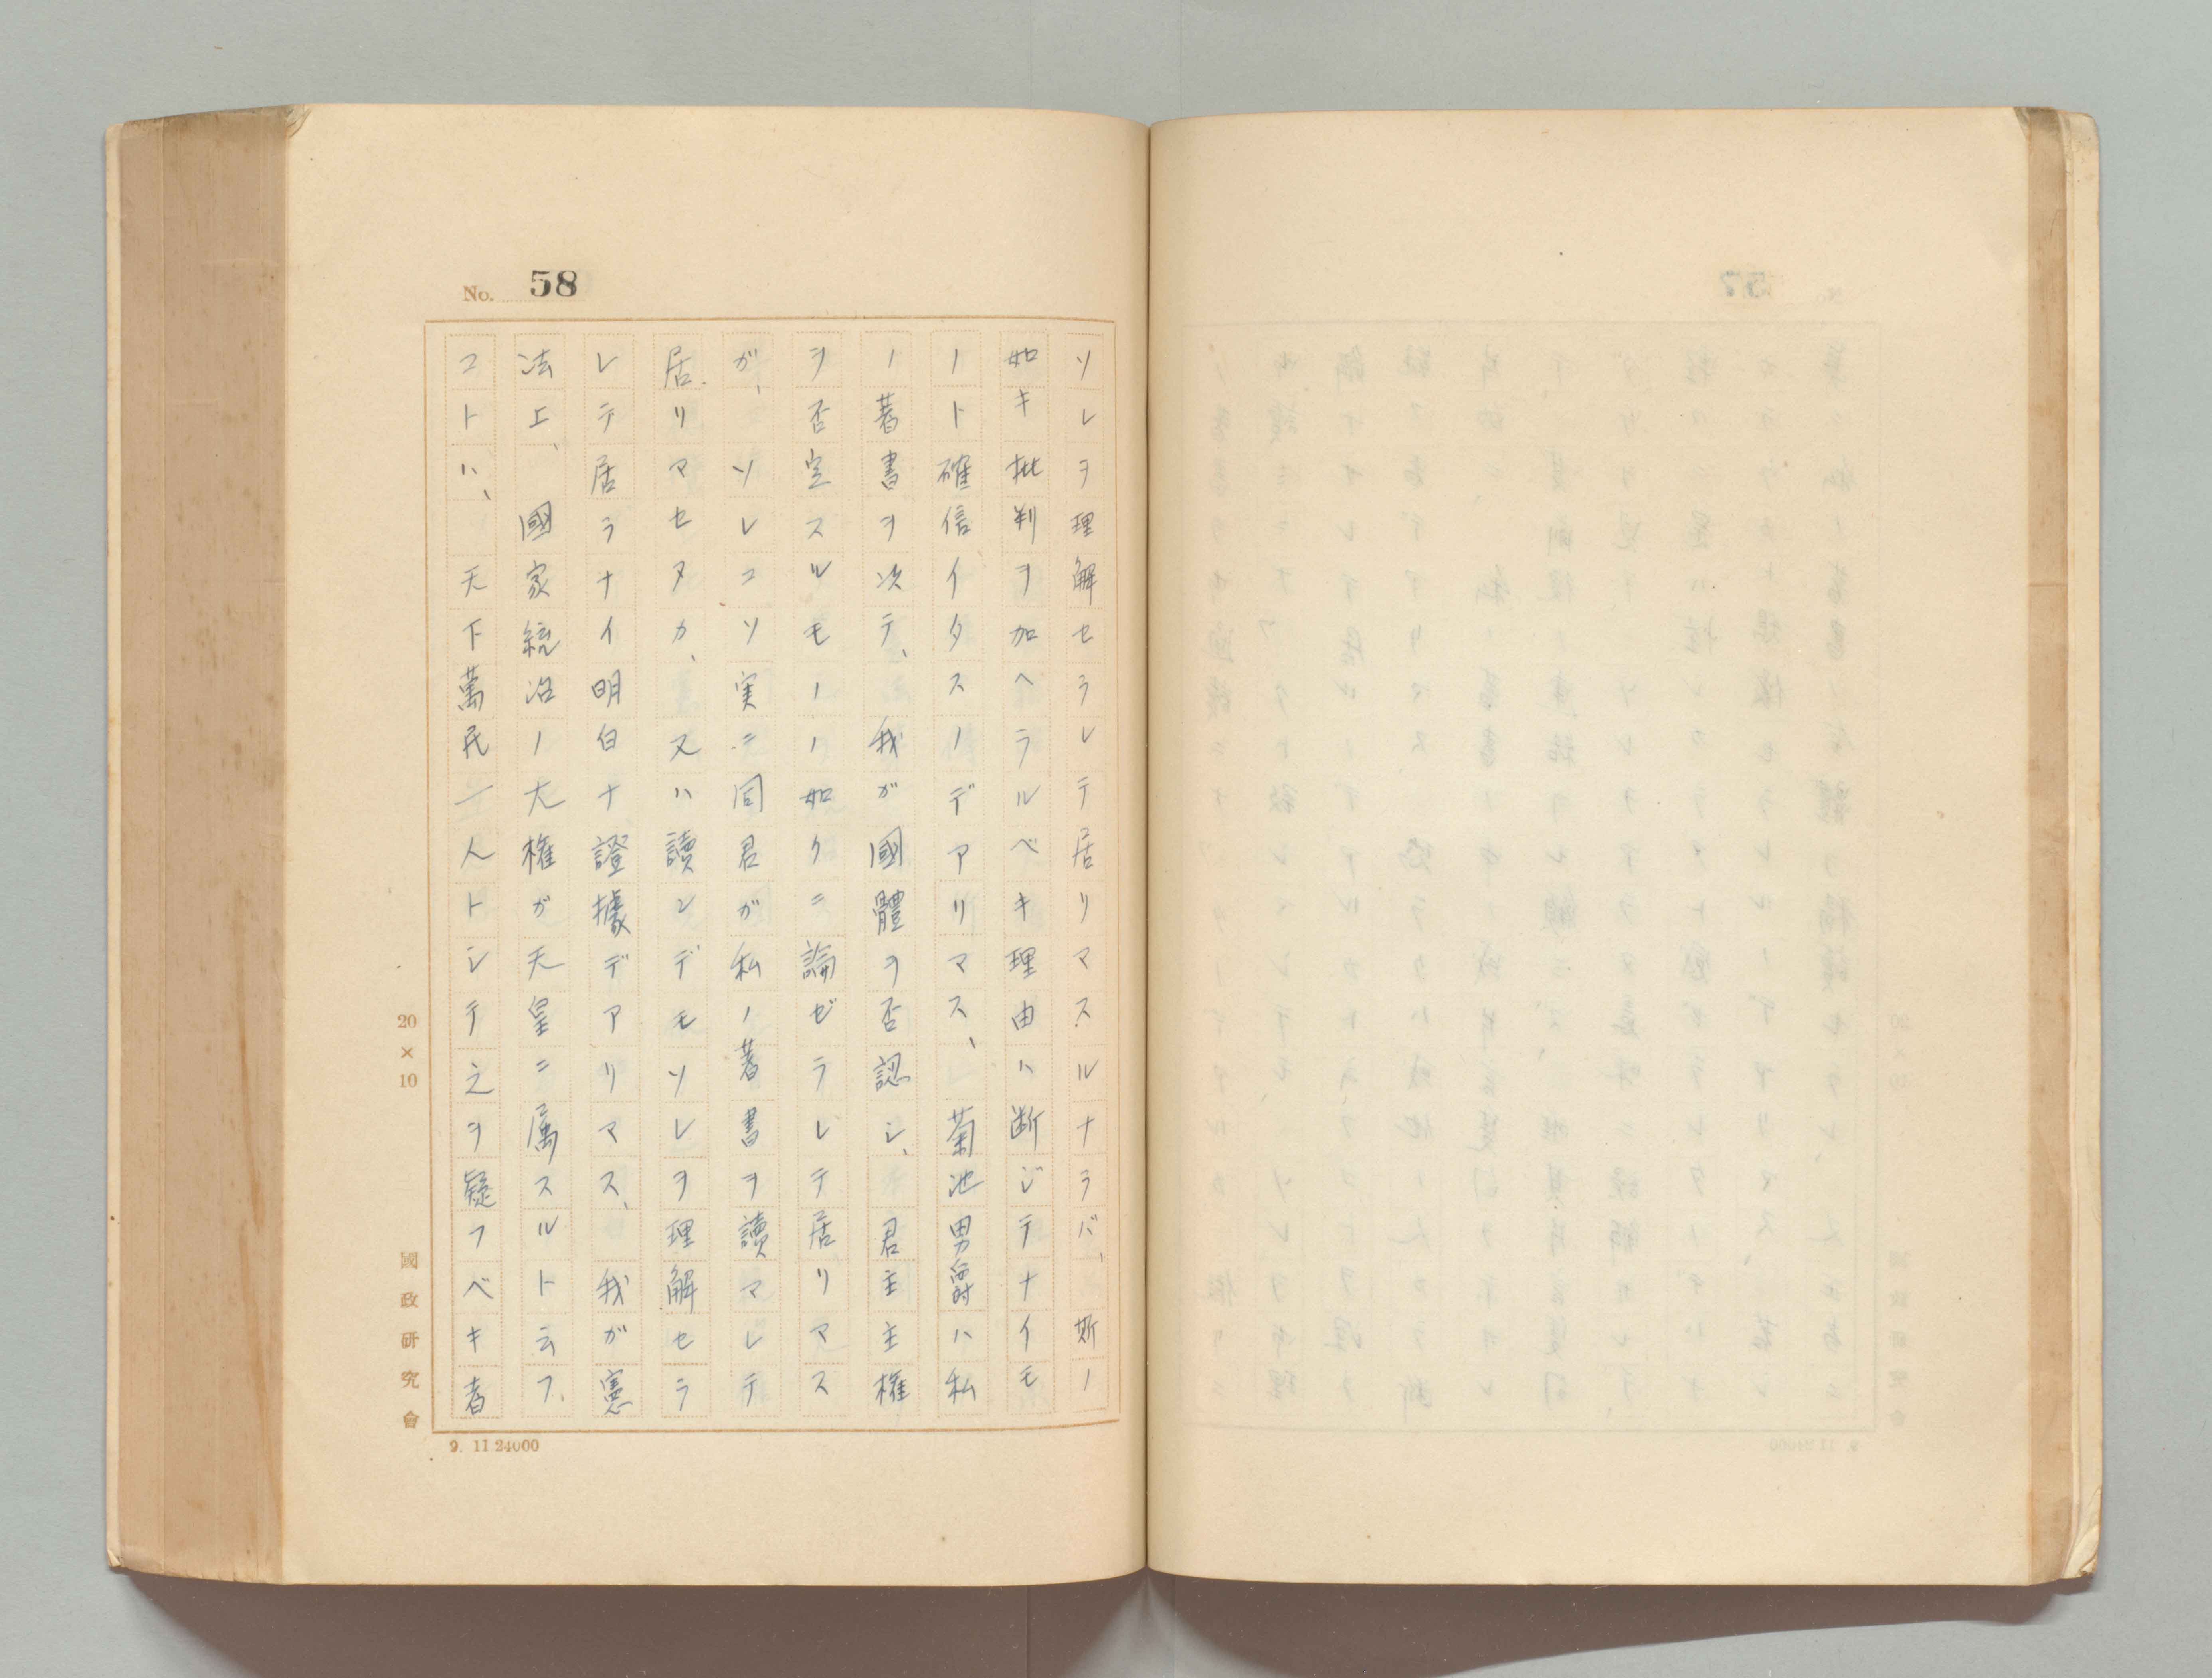 No. 58
ソレヲ理解セラレテ居リマスルナラバ、斯ノ
如キ批判ヲ加ヘラルベキ理由ハ断ジテナイモ
ノト確信イタスノデアリマス、菊池男爵ハ私
ノ著書ヲ次テ、我ガ國體ヲ否認シ、君主主権
ヲ否定スルモノノ如クニ論ゼラレテ居リマス
ガ、ソレコソ実ニ同君ガ私ノ著書ヲ讀マレテ
居リマセヌカ、又ハ讀ンデモソレヲ理解セラ
レテ居ラナイ明白ナ證據デアリマス、我ガ憲
法上、國家統治ノ大権ガ天皇ニ属スルト云フ
コトハ、天下萬民一人トシテ之ヲ疑フベキ者
20×10
國政研究會
9. 11 24000